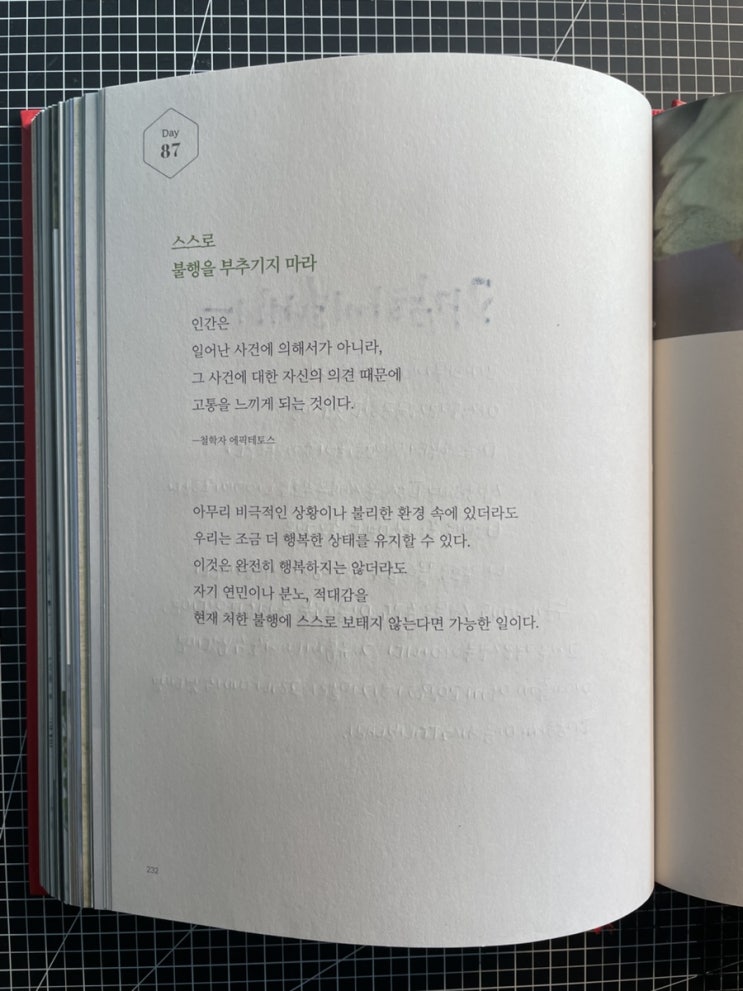 Day
87
스스로
불행을 부추기지 마라
인간은
일어난 사건에 의해서가 아니라,
그 사건에 대한 자신의 의견 때문에
고통을 느끼게 되는 것이다.
–철학자 에픽테토스
아무리 비극적인 상황이나 불리한 환경 속에 있더라도
우리는 조금 더 행복한 상태를 유지할 수 있다.
이것은 완전히 행복하지는 않더라도
자기 연민이나 분노, 적대감을
현재 처한 불행에 스스로 보태지 않는다면 가능한 일이다.
232